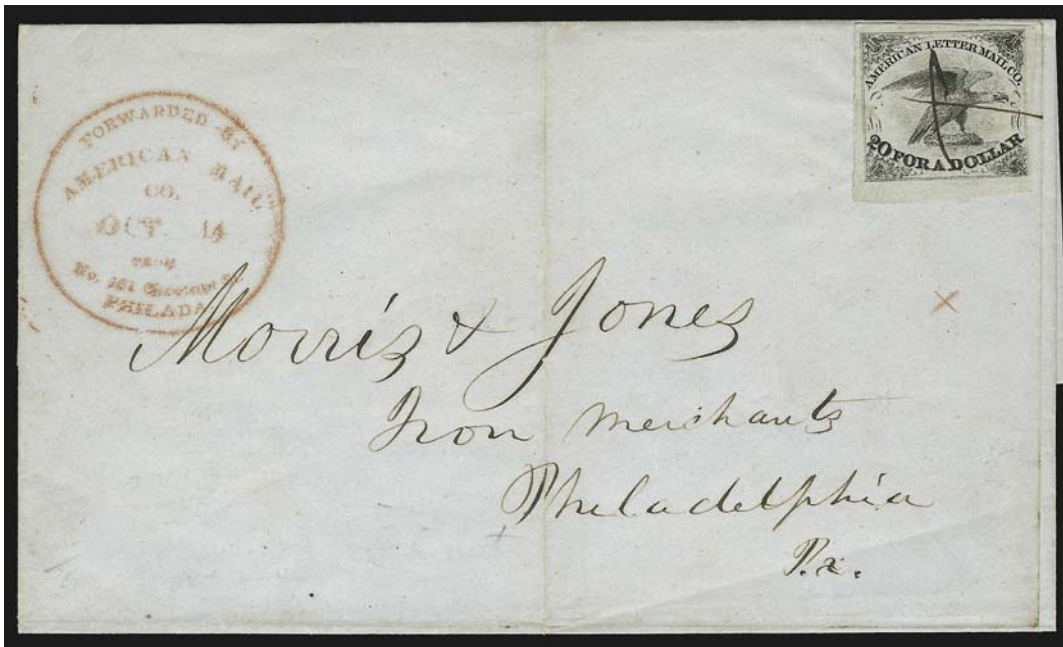 FORWARDED BY
AMERICAN MAIL
CO.
OCT. 14
No. 101 Chesnut St.
PHILADA
AMERICAN LETTER MAIL CO.
20 FOR A DOLLAR
Morris & Jones
Iron Merchants
Philadelphia
Pa.